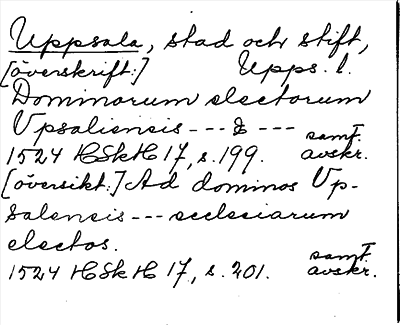 Uppsala, stad och stift,
[överskrift:] Upps. l.
Dominorum electorum
Vpsaliensis --- & ---
1524 HSkH 17, s. 199. samt. avskr.
[översikt:] Ad dominos Vp-
salensis --- ecclesiarum
electos.
1524 HSkH 17, s. 201. samt. avskr.